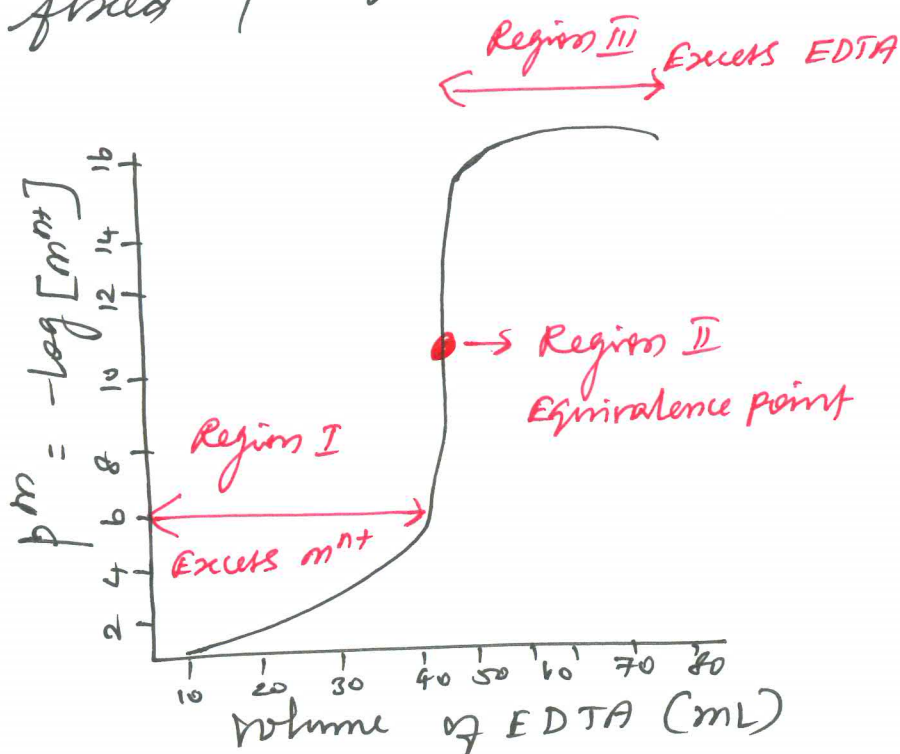 fixed
Region III
Excess EDTA
16
14
12
10
8
6
4
2
pM = -log [Mⁿ⁺]
→ Region II
Equivalence point
Region I
Excess Mⁿ⁺
10 20 30 40 50 60 70 80
Volume of EDTA (mL)